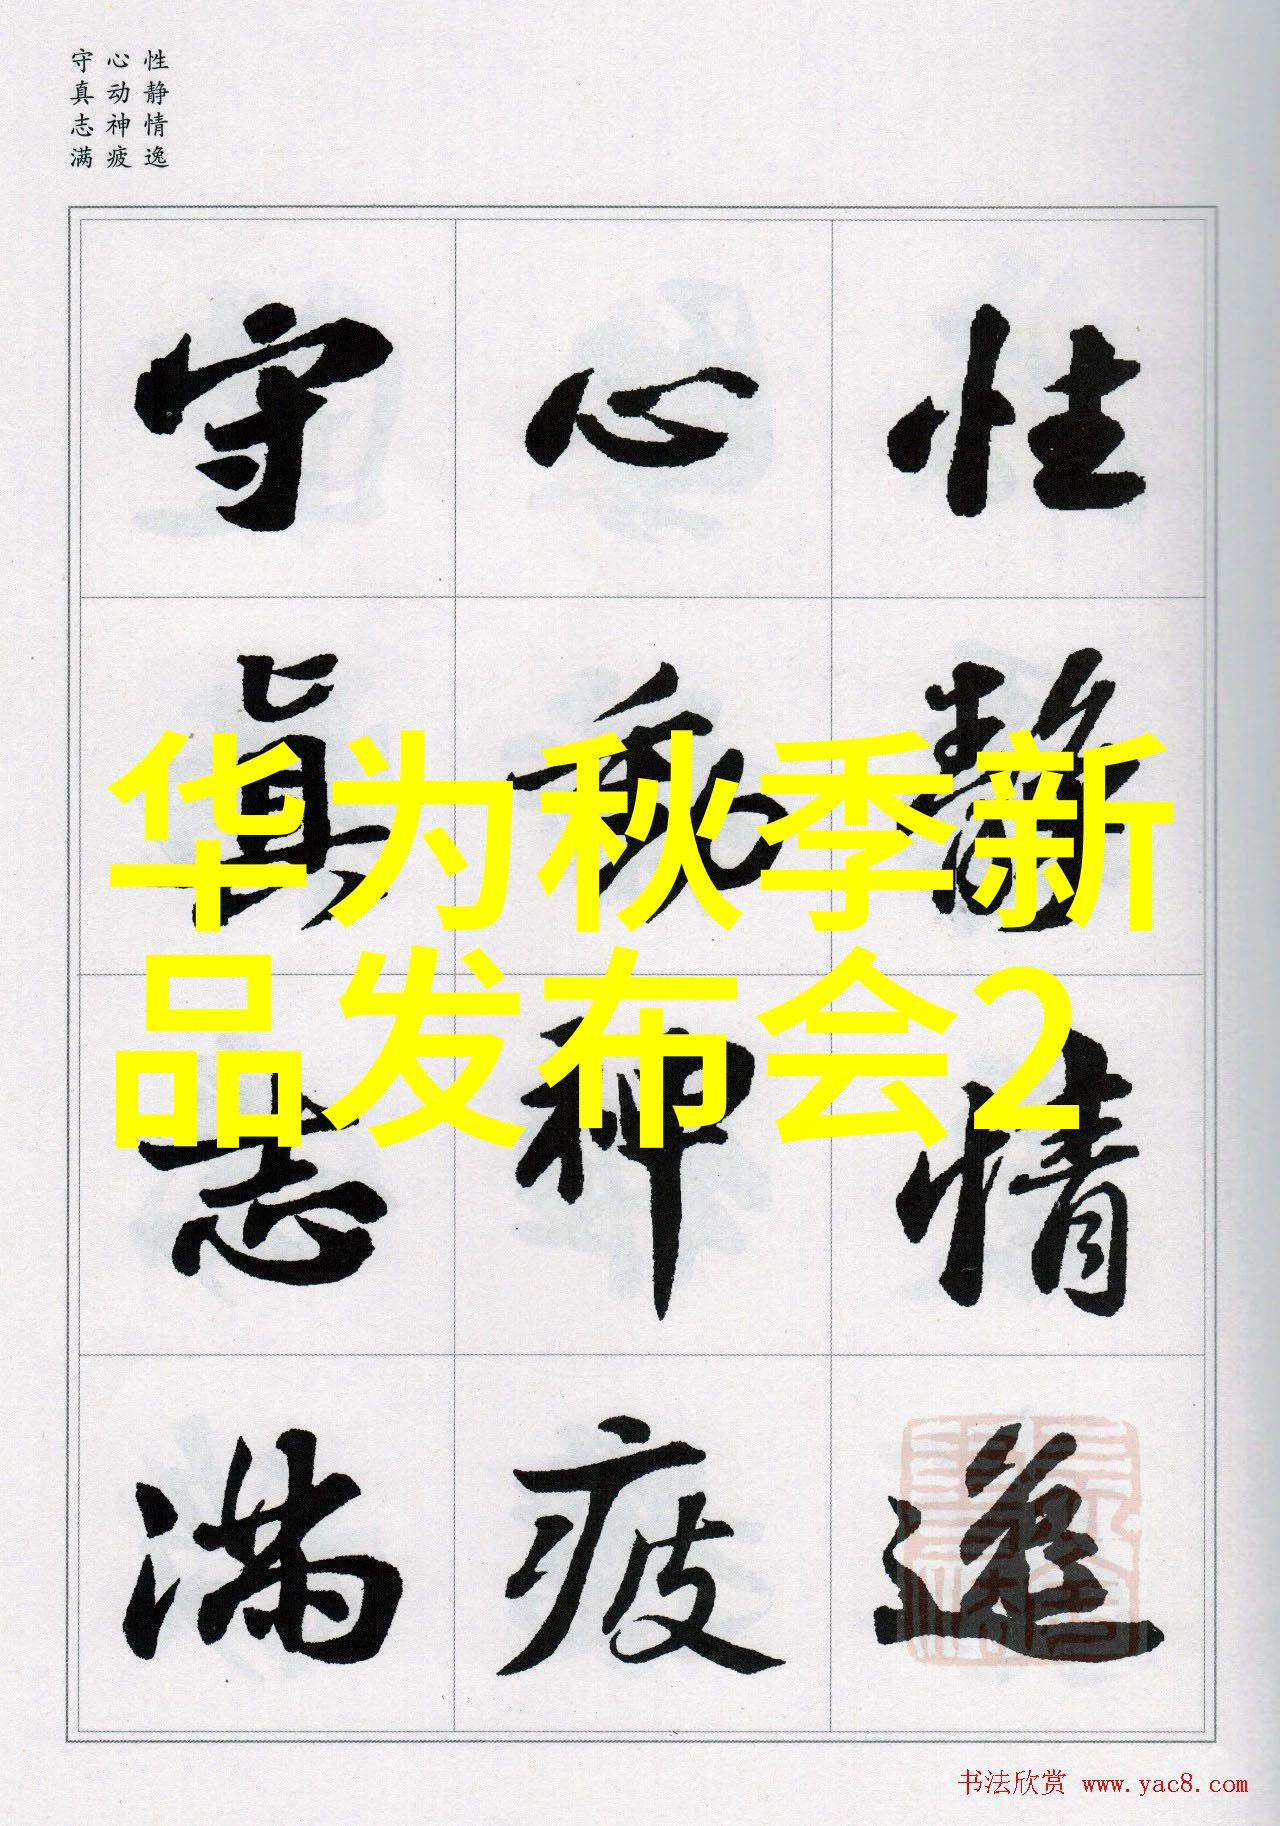 性静情逸
心动神疲
守真志满
性靜情逸
心動神疲
守眞志滿
华为秋季新
品发布会2
书法欣赏 www.yac8.com